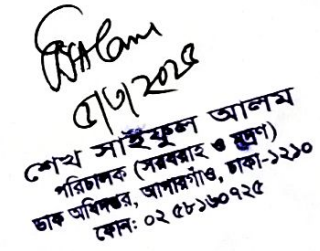 ৫/৩/২০২৫
শেখ সাইফুল আলম
পরিচালক (সরবরাহ ও মুদ্রণ)
ডাক অধিদপ্তর, আগারগাঁও, ঢাকা-১২১০
ফোন: ০২ ৫৮১৬০৭২৫